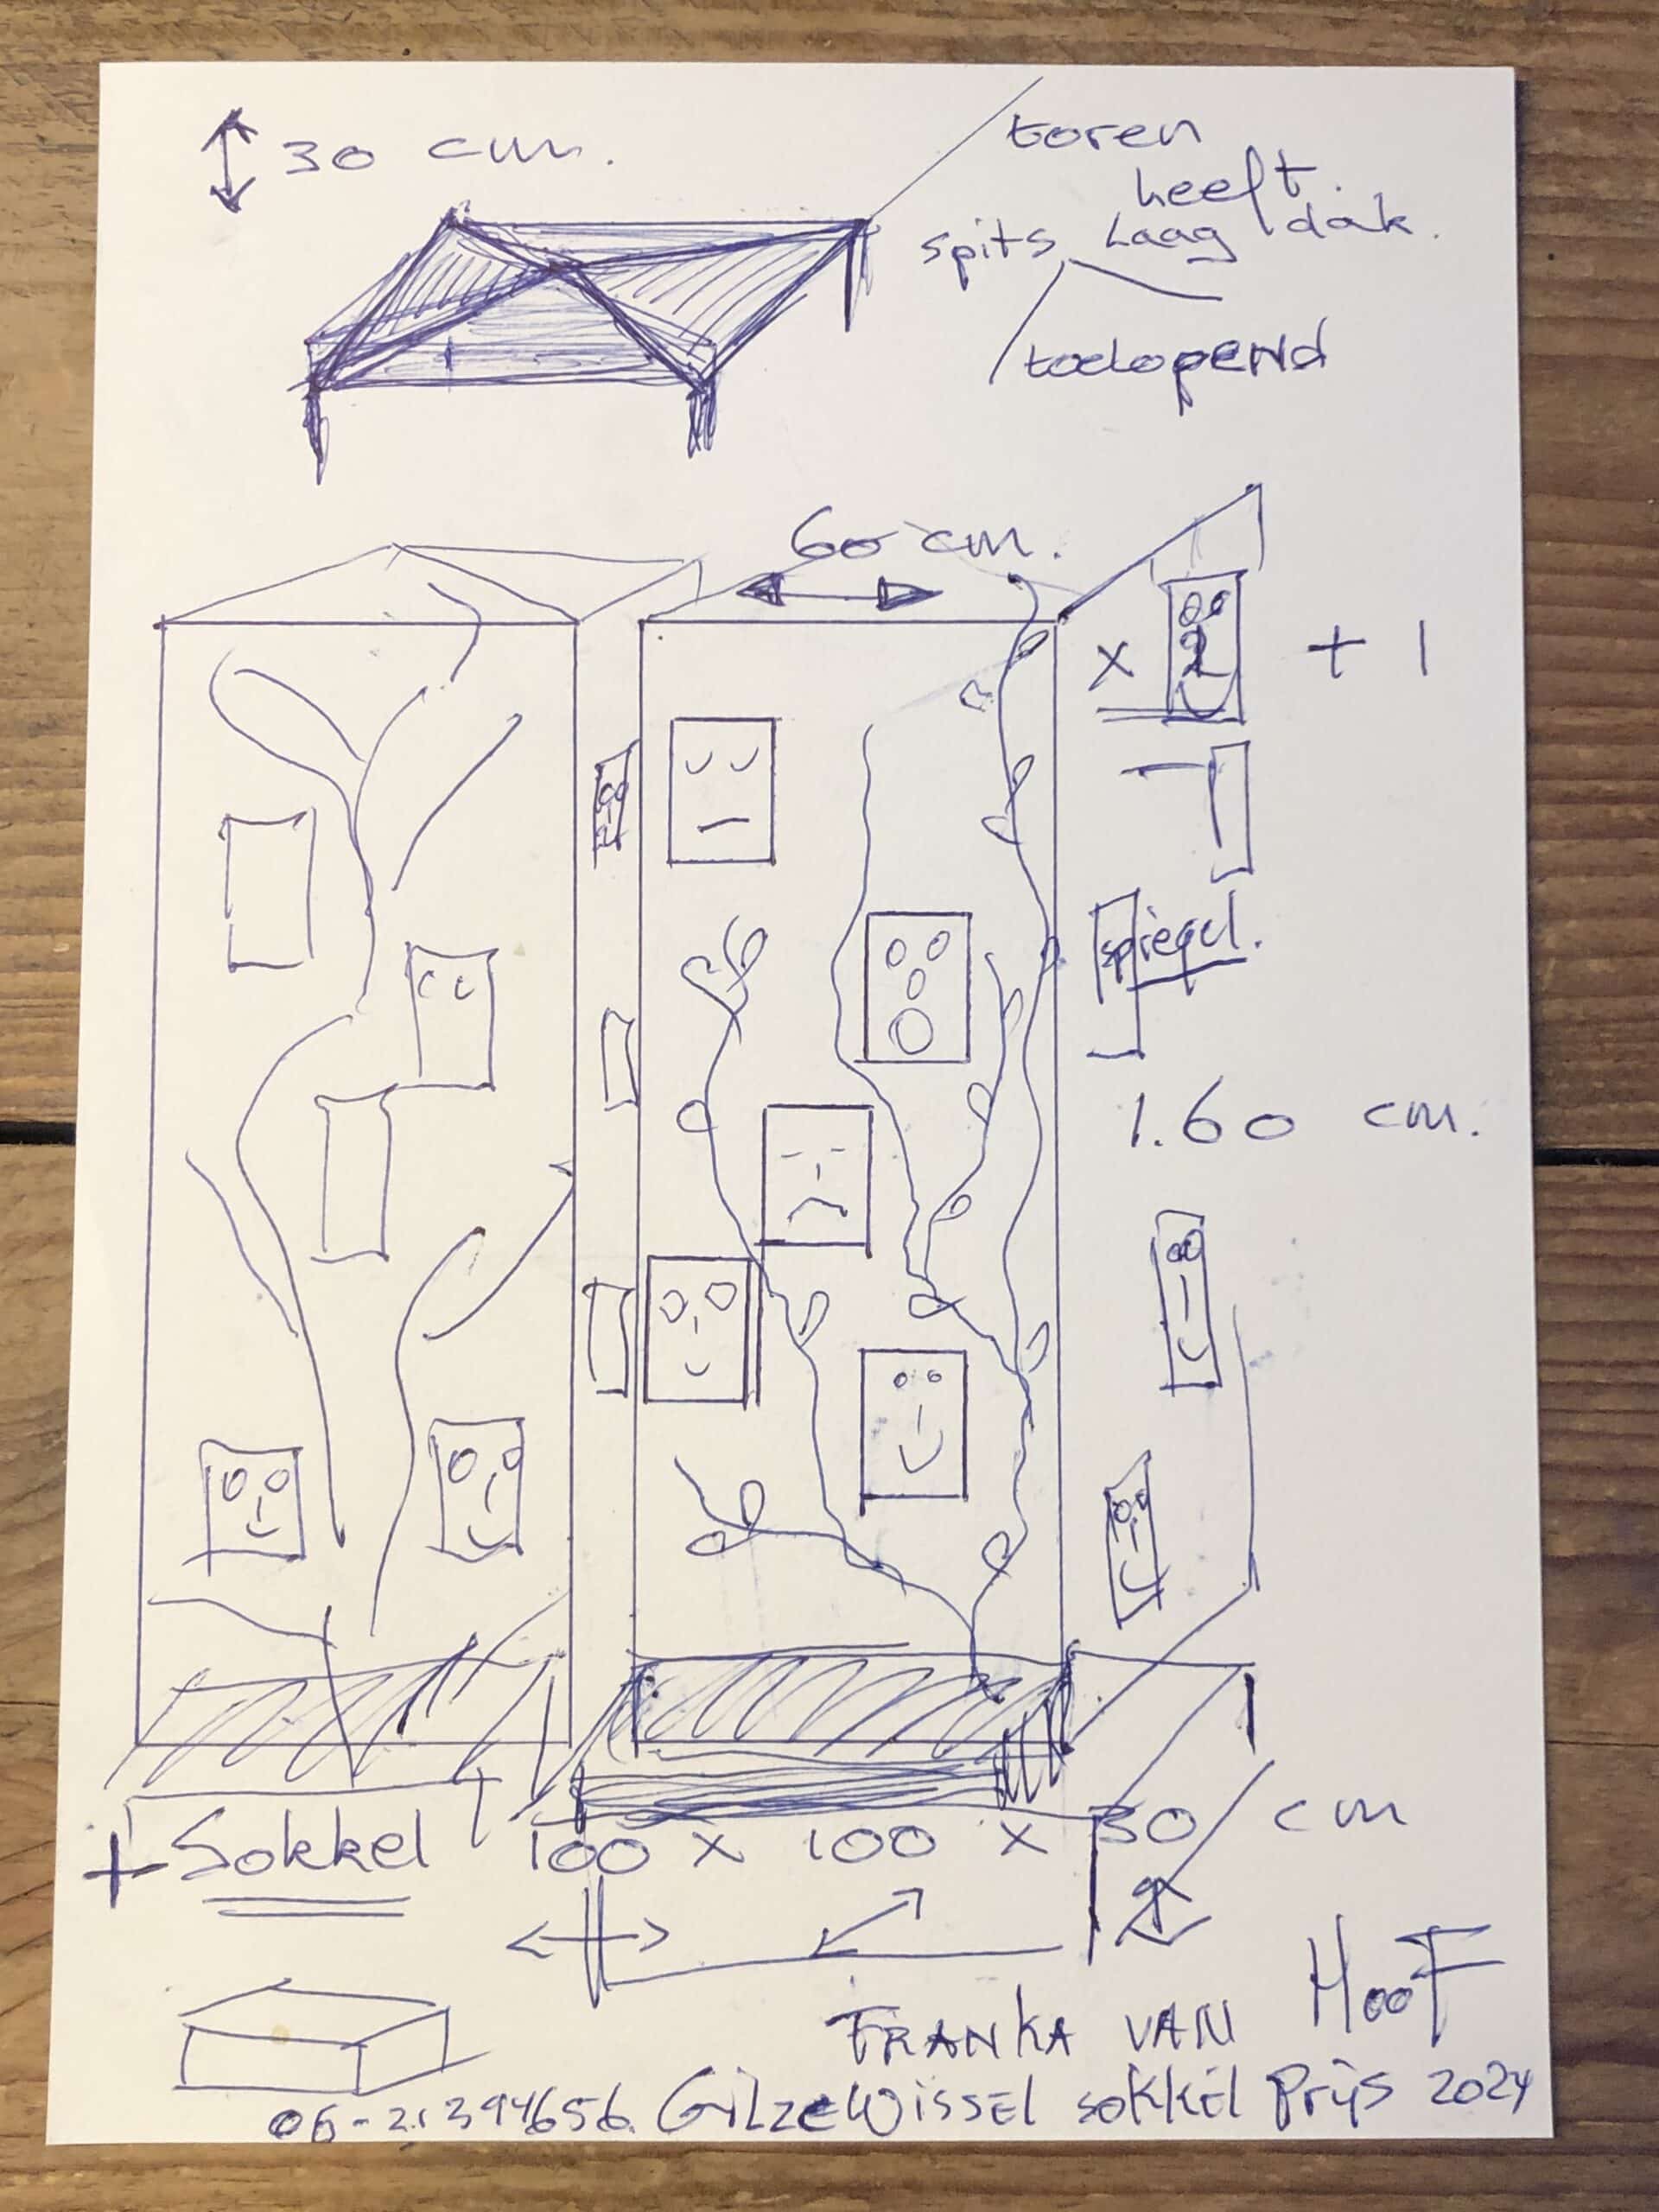 30 cm.
toren
heeft
spits laag dak.
toelopend
60 cm.
x 2 + 1
spiegel.
1.60 cm.
+ Sokkel 100 x 100 x 30 cm
FRANKA VAN HOOF
06-21394656. GilzeWissel sokkel Prijs 2024